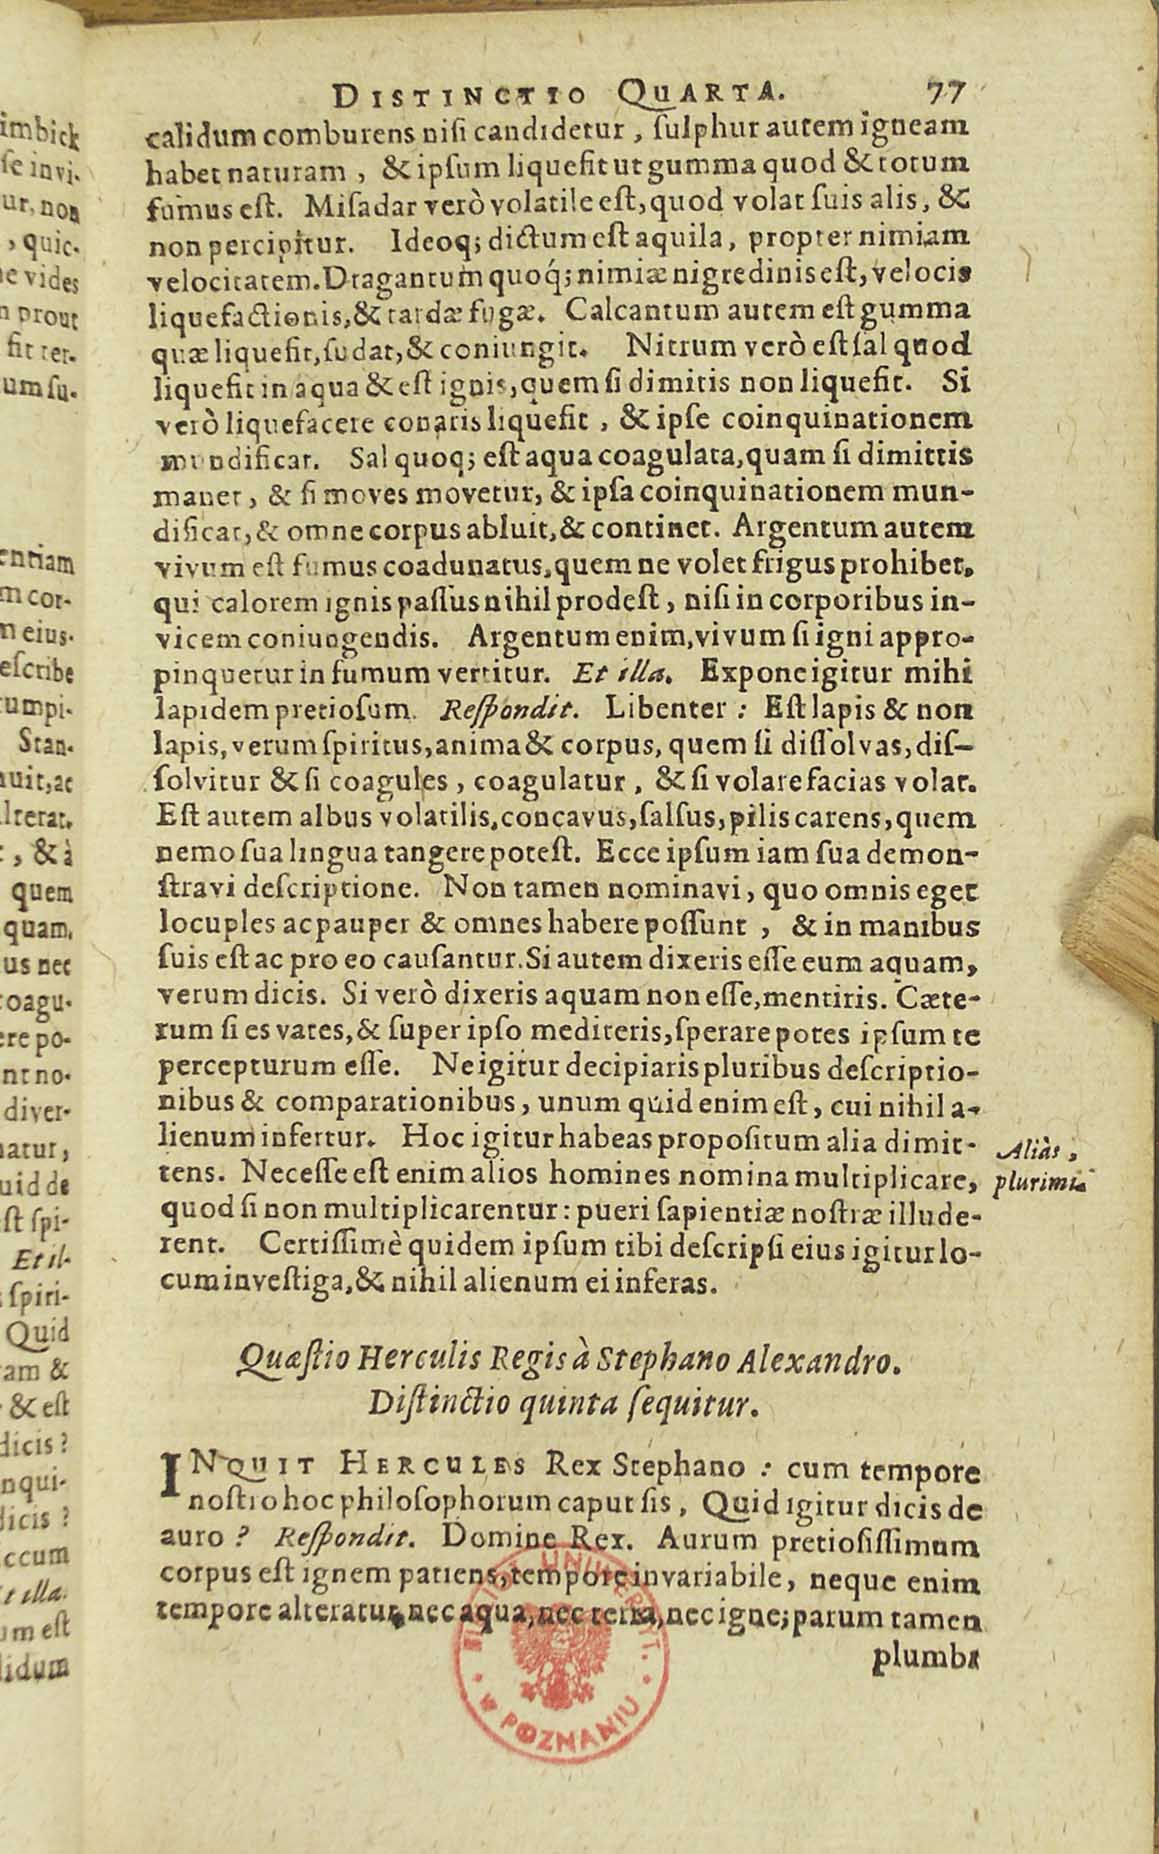 DISTINCTIO QUARTA. 77
calidum comburens nisi candidetur, sulphur autem igneam
habet naturam, & ipsum liquefit ut gumma quod & totum
fumus est. Misadar verò volatile est, quod volat suis alis, &
non percipitur. Ideoq; dictum est aquila, propter nimiam
velocitatem. Dragantum quoq́; nimiæ nigredinis est, velocis
liquefactionis, & tardæ fugæ. Calcantum autem est gumma
quæ liquefit, sudat, & coniungit. Nitrum verò est sal quod
liquefit in aqua & est ignis, quem si dimitis non liquefit. Si
verò liquefacere conaris liquefit, & ipse coinquinationem
mundificat. Sal quoq; est aqua coagulata, quam si dimittis
manet, & si moves movetur, & ipsa coinquinationem mun-
dificat, & omne corpus abluit, & continet. Argentum autem
vivum est fumus coadunatus, quem ne volet frigus prohibet,
qui calorem ignis passus nihil prodest, nisi in corporibus in-
vicem coniungendis. Argentum enim, vivum si igni appro-
pinquetur in fumum vertitur. Et illa. Expone igitur mihi
lapidem pretiosum. Respondit. Libenter: Est lapis & non
lapis, verum spiritus, anima & corpus, quem si dissolvas, dis-
solvitur & si coagules, coagulatur, & si volare facias volat.
Est autem albus volatilis, concavus, salsus, pilis carens, quem
nemo sua lingua tangere potest. Ecce ipsum iam sua demon-
stravi descriptione. Non tamen nominavi, quo omnis eget
locuples ac pauper & omnes habere possunt, & in manibus
suis est ac pro eo causantur. Si autem dixeris esse eum aquam,
verum dicis. Si verò dixeris aquam non esse, mentiris. Cæte-
rum si es vates, & super ipso mediteris, sperare potes ipsum te
percepturum esse. Ne igitur decipiaris pluribus descriptio-
nibus & comparationibus, unum quid enim est, cui nihil a-
lienum infertur. Hoc igitur habeas propositum alia dimit-
tens. Necesse est enim alios homines nomina multiplicare,
Aliàs,
plurimis
quod si non multiplicarentur: pueri sapientiæ nostræ illude-
rent. Certissimè quidem ipsum tibi descripsi eius igitur lo-
cum investiga, & nihil alienum ei inferas.
Quæstio Herculis Regis à Stephano Alexandro.
Distinctio quinta sequitur.
INQUIT HERCULES Rex Stephano: cum tempore
nostro hoc philosophorum caput sis, Quid igitur dicis de
auro? Respondit. Domine Rex. Aurum pretiosissimum
corpus est ignem patiens, tempore invariabile, neque enim
tempore alteratur, nec aqua, nec terra, nec igne; parum tamen
plumbi
W POZNANIU
imbick
se invi-
ur, non
, quic-
e vides
n prout
fit ter-
um su-
entiam
m cor-
n eius-
escribe
umpi-
Stan-
uit, ac
lterat,
, & à
quem
quam,
us nec
coagu-
ere po-
nt no-
diver-
natur,
uid de
st spi-
Et il-
spiri-
Quid
am &
& est
dicis?
nqui-
dicis?
ccum
t illa.
um est
lidum